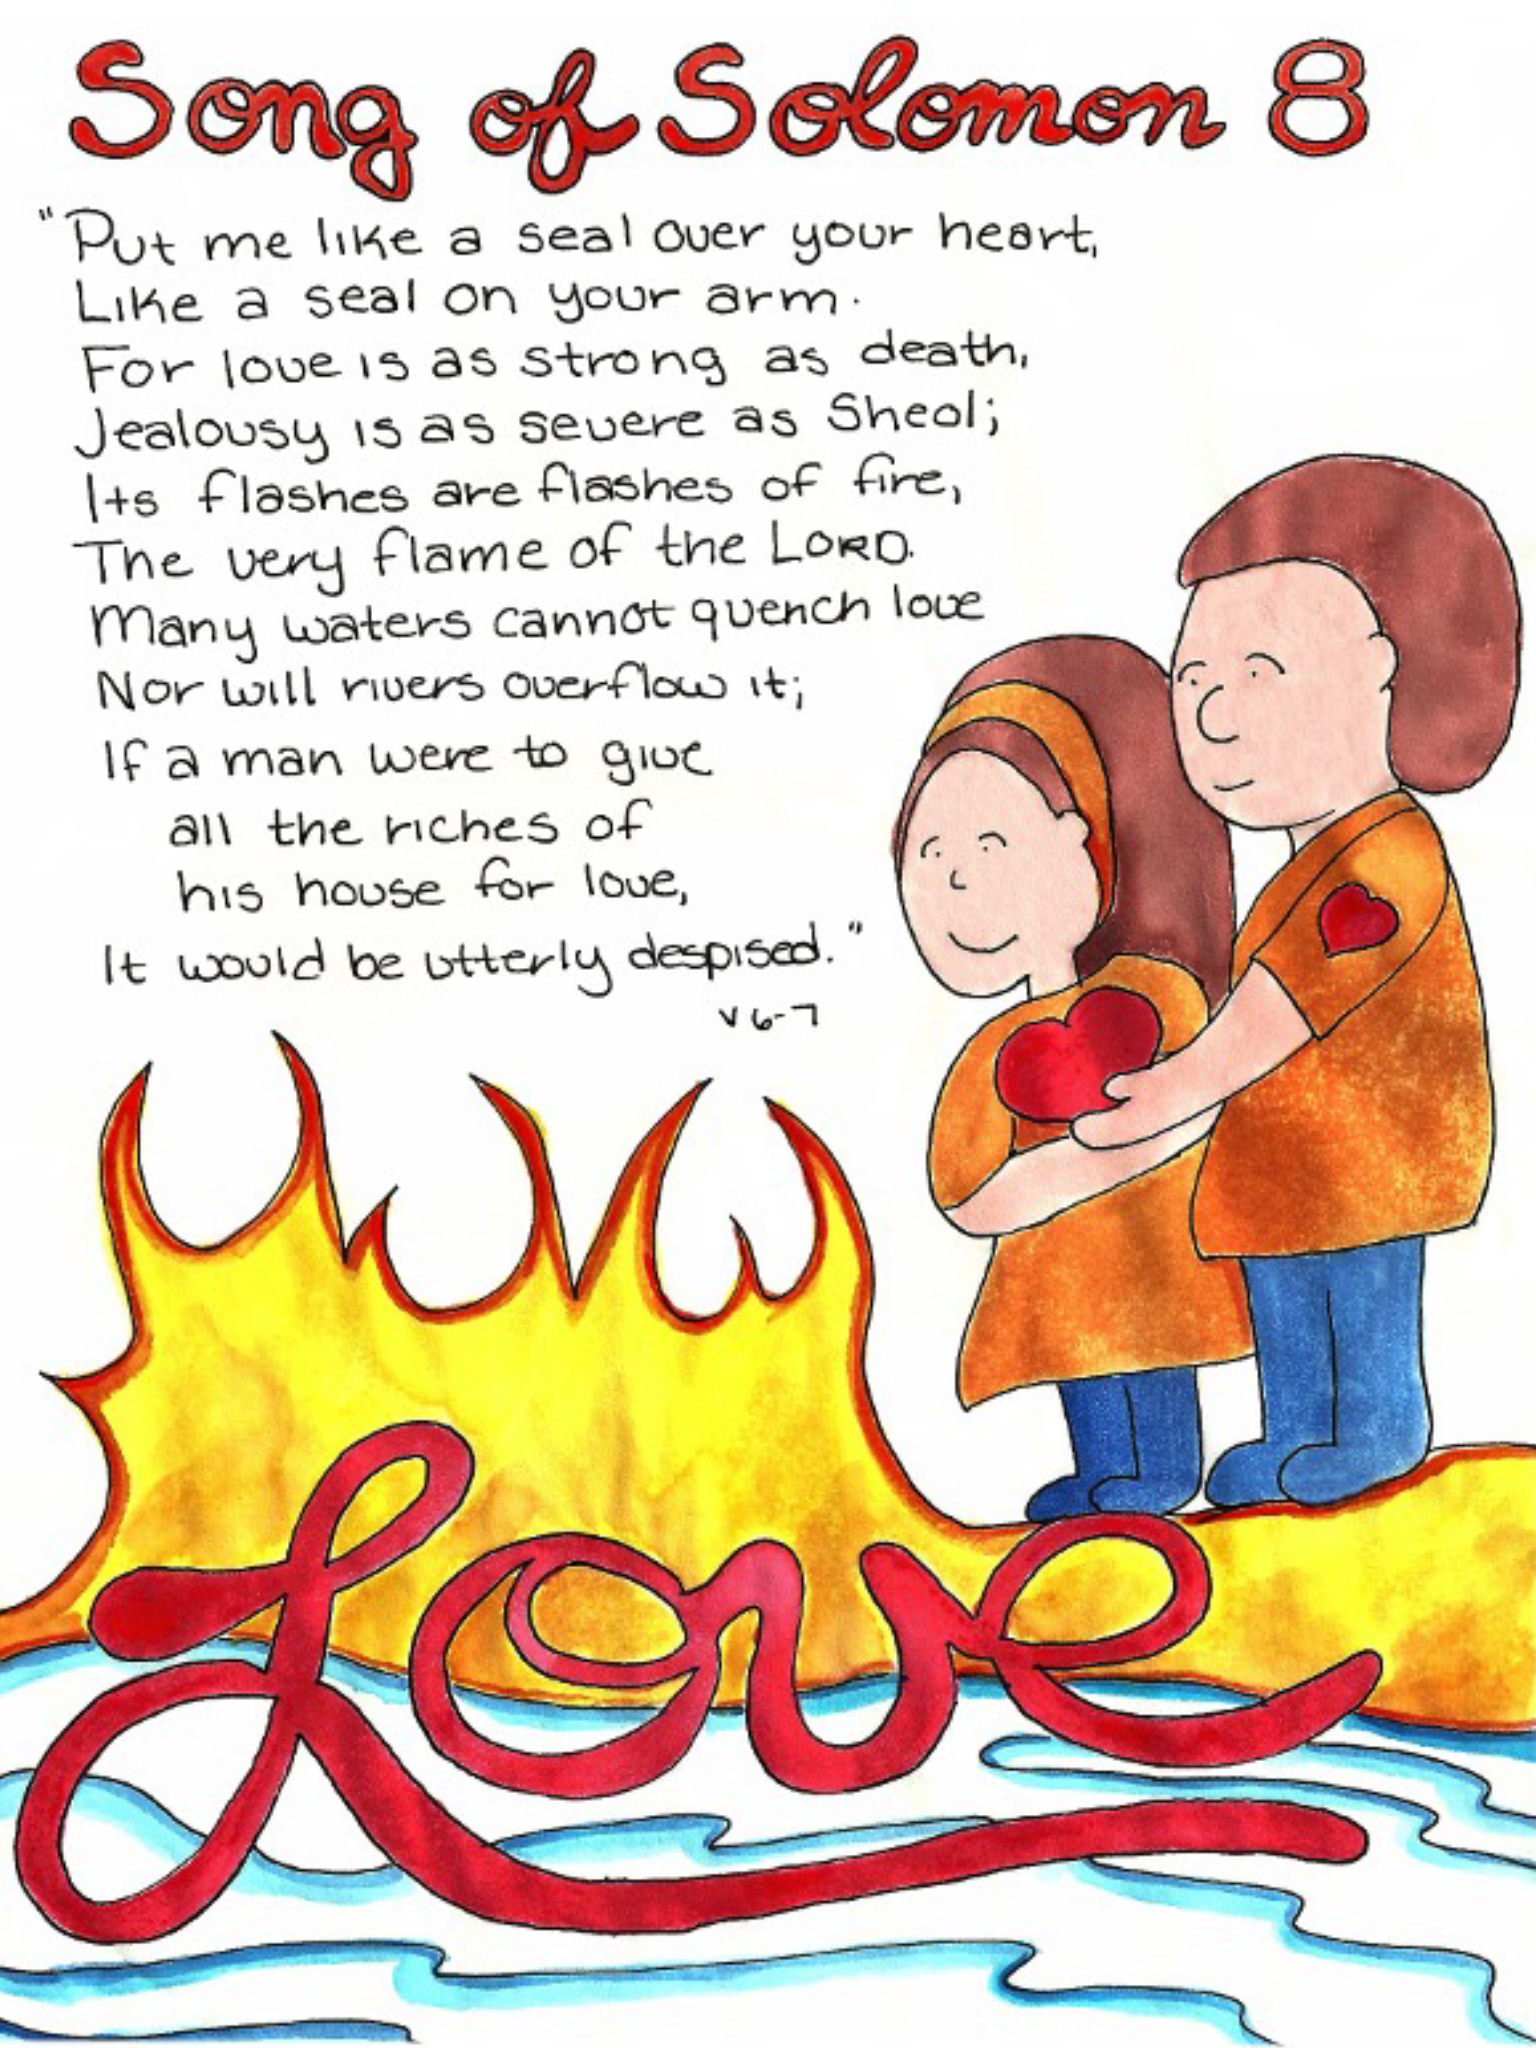 Song of Solomon 8
"Put me like a seal over your heart,
Like a seal on your arm.
For love is as strong as death,
Jealousy is as severe as Sheol;
Its flashes are flashes of fire,
The very flame of the LORD.
Many waters cannot quench love
Nor will rivers overflow it;
If a man were to give
all the riches of
his house for love,
It would be utterly despised."
v 6-7
Love